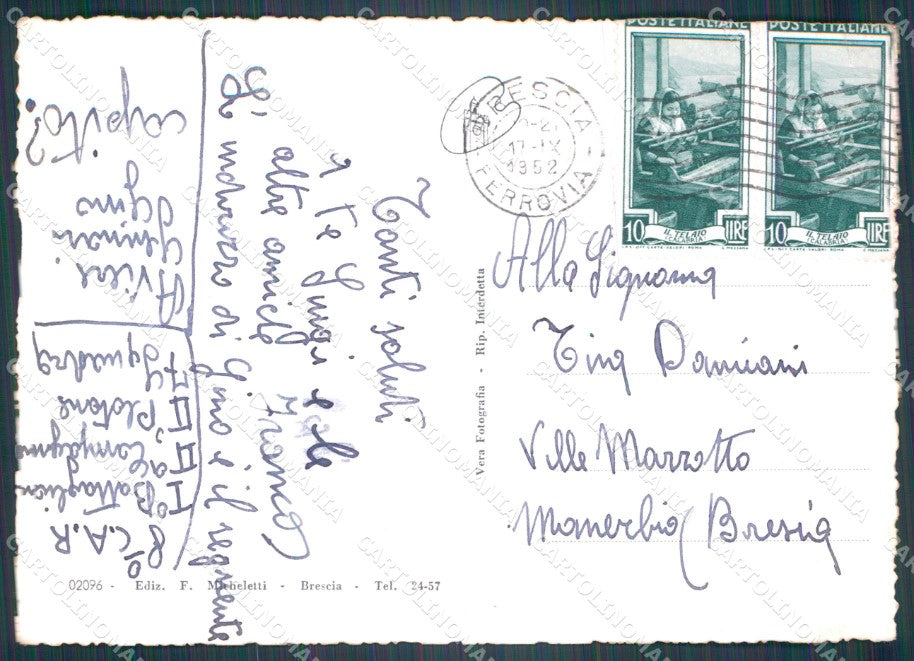 POSTE ITALIANE
POSTE ITALIANE
10 LIRE
IL TELAIO
CALABRIA
10 LIRE
IL TELAIO
CALABRIA
BRESCIA
17-IX
1952
FERROVIA
Tanti saluti
a te Gingi e alle
altre amiche Franco
L'indirizzo di Gino è il seguente
capito?
Aviere
Gino
8° C.A.R
I° Battaglion
II a Compagnia
II Plotone
7 Squadra
Alla Signorina
Tina Damiani
Villa Marzotto
Manerbio (Brescia
Vera Fotografia - Rip. Interdetta
02096 - Ediz. F. Micheletti - Brescia - Tel. 24-57
CARTOLINOMANIA